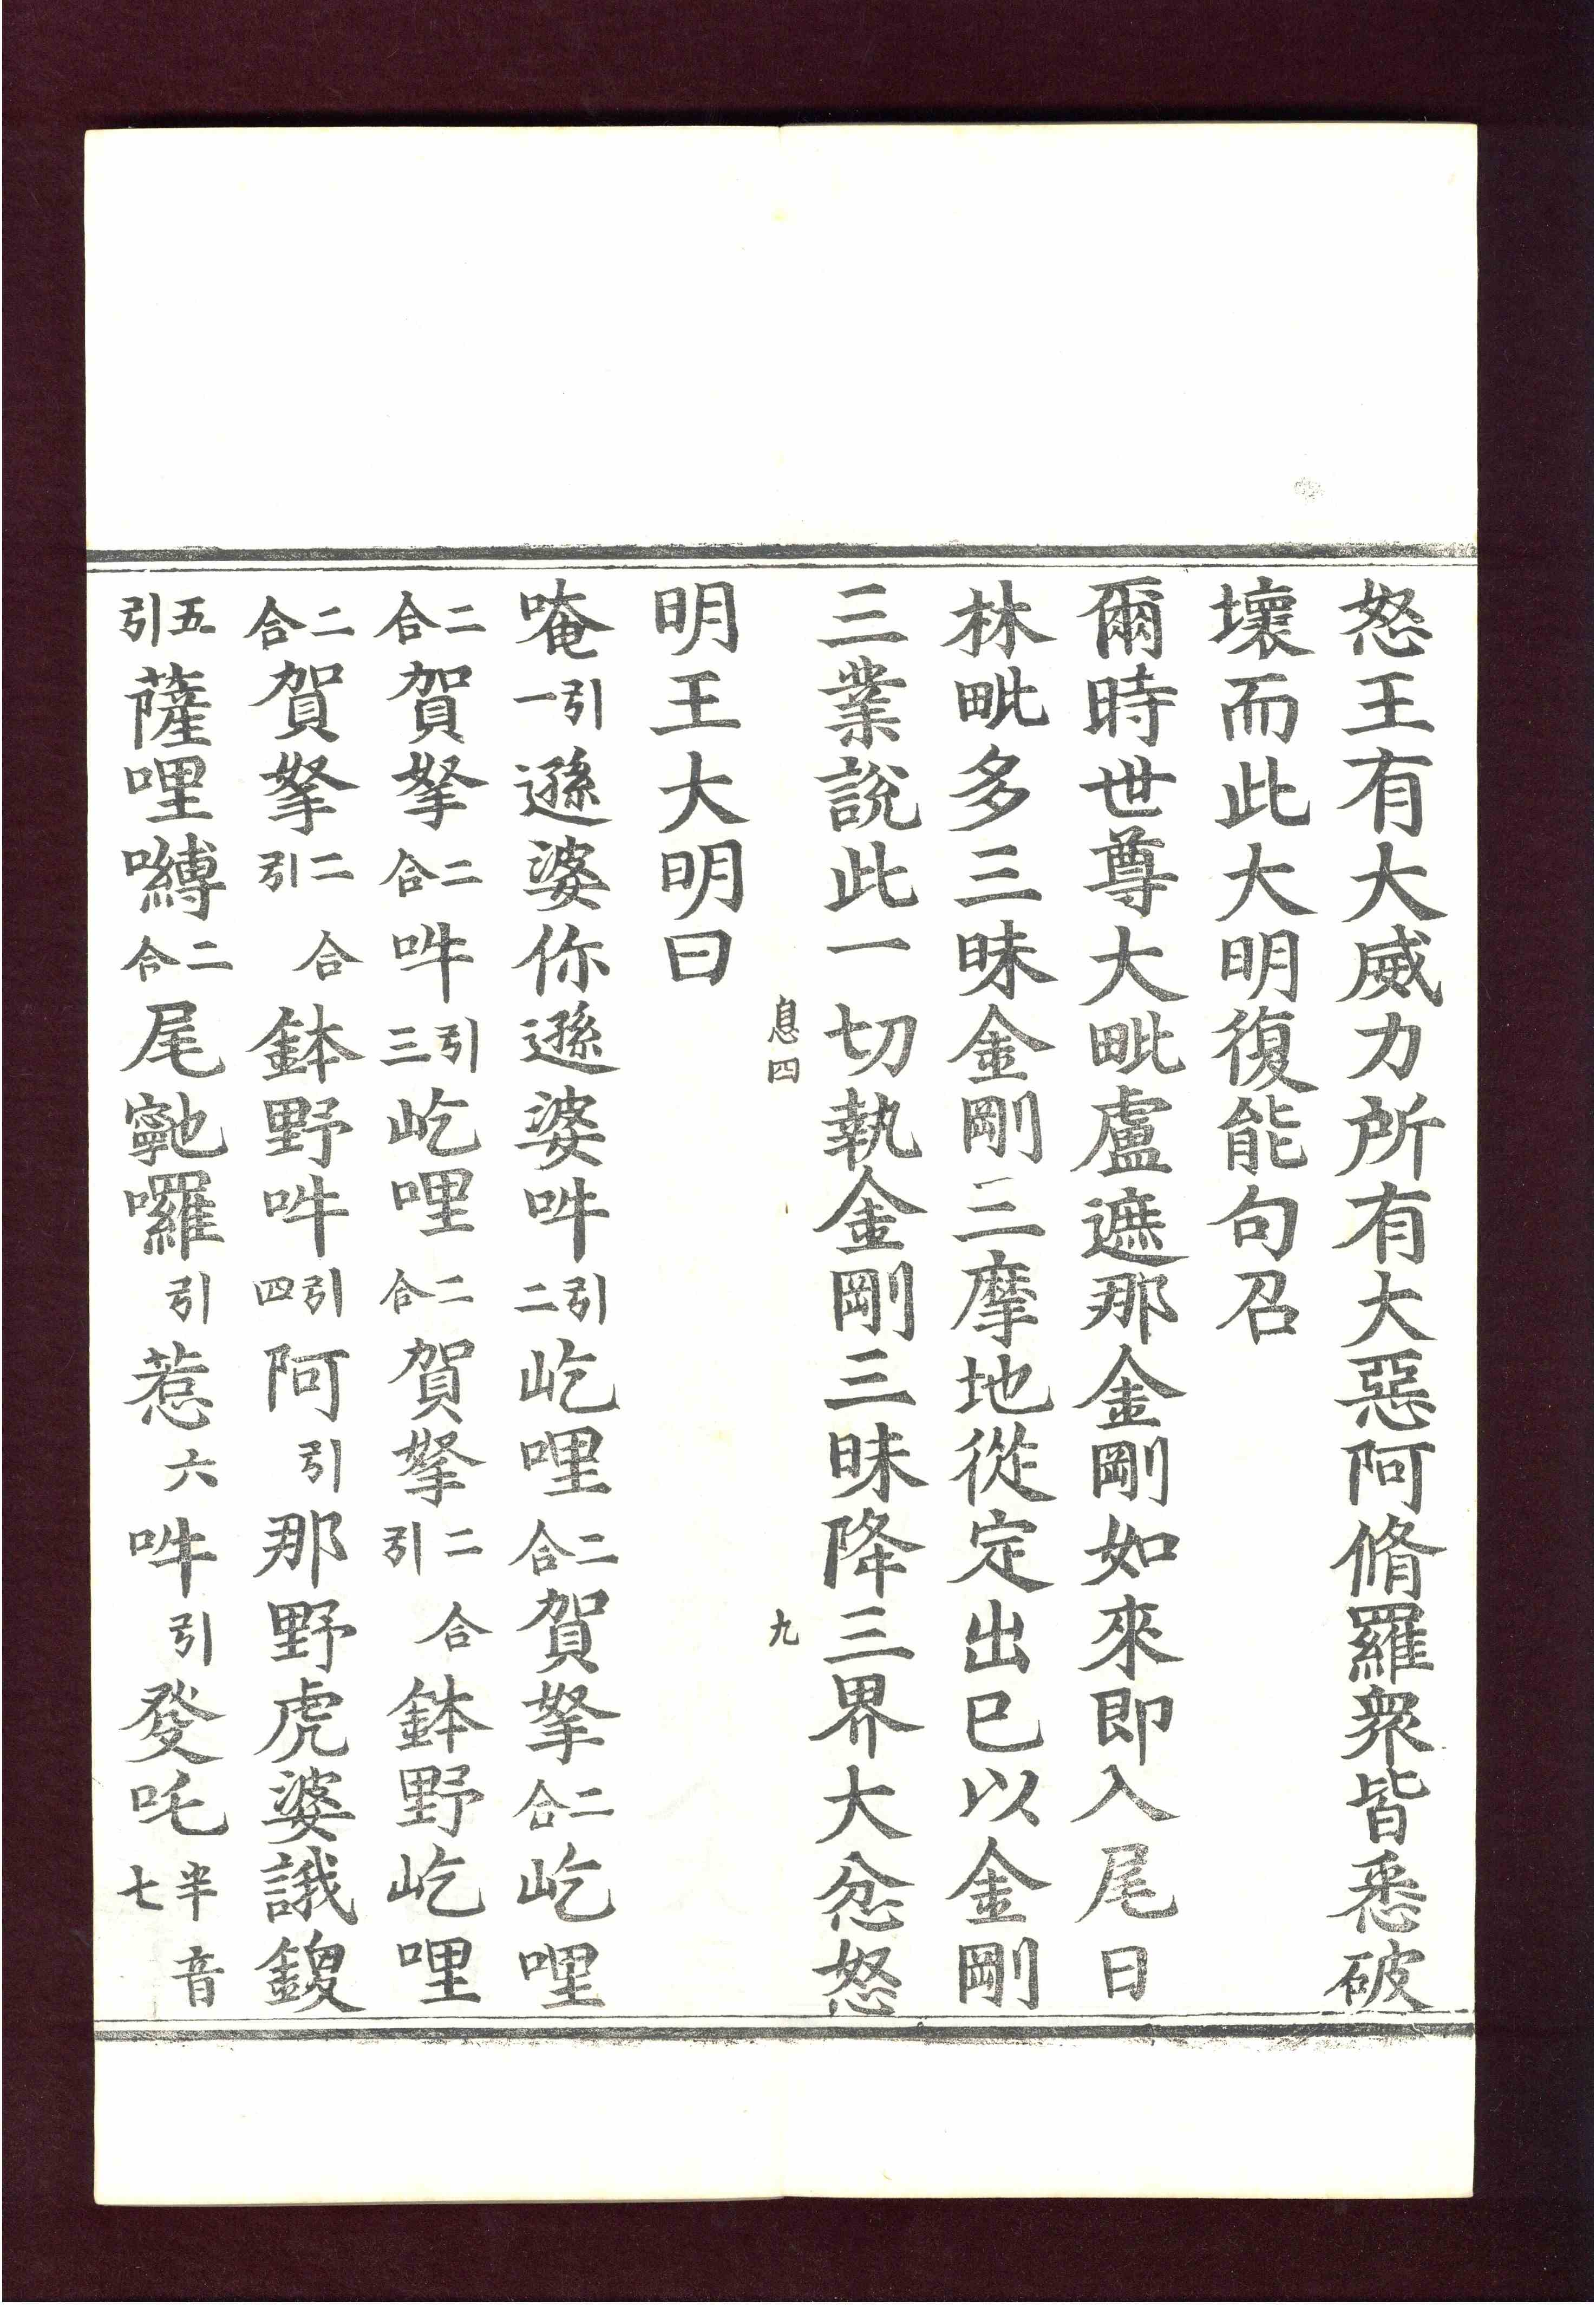 怒王有大威力所有大惡阿脩羅衆皆悉破
壞而此大明復能句召
爾時世尊大毗盧遮那金剛如來即入尾日
林毗多三昧金剛三摩地從定出已以金剛
三業說此一切執金剛三昧降三界大忿怒
息四 九
明王大明曰
唵引一遜婆你遜婆吽引二屹哩二合賀拏二合屹哩
二合賀拏二合吽引三屹哩二合賀拏二引合鉢野屹哩
二合賀拏二引合鉢野吽引四阿引那野虎婆誐鍐
五引薩哩嚩二合尾䆨囉引惹六吽引發吒半音七